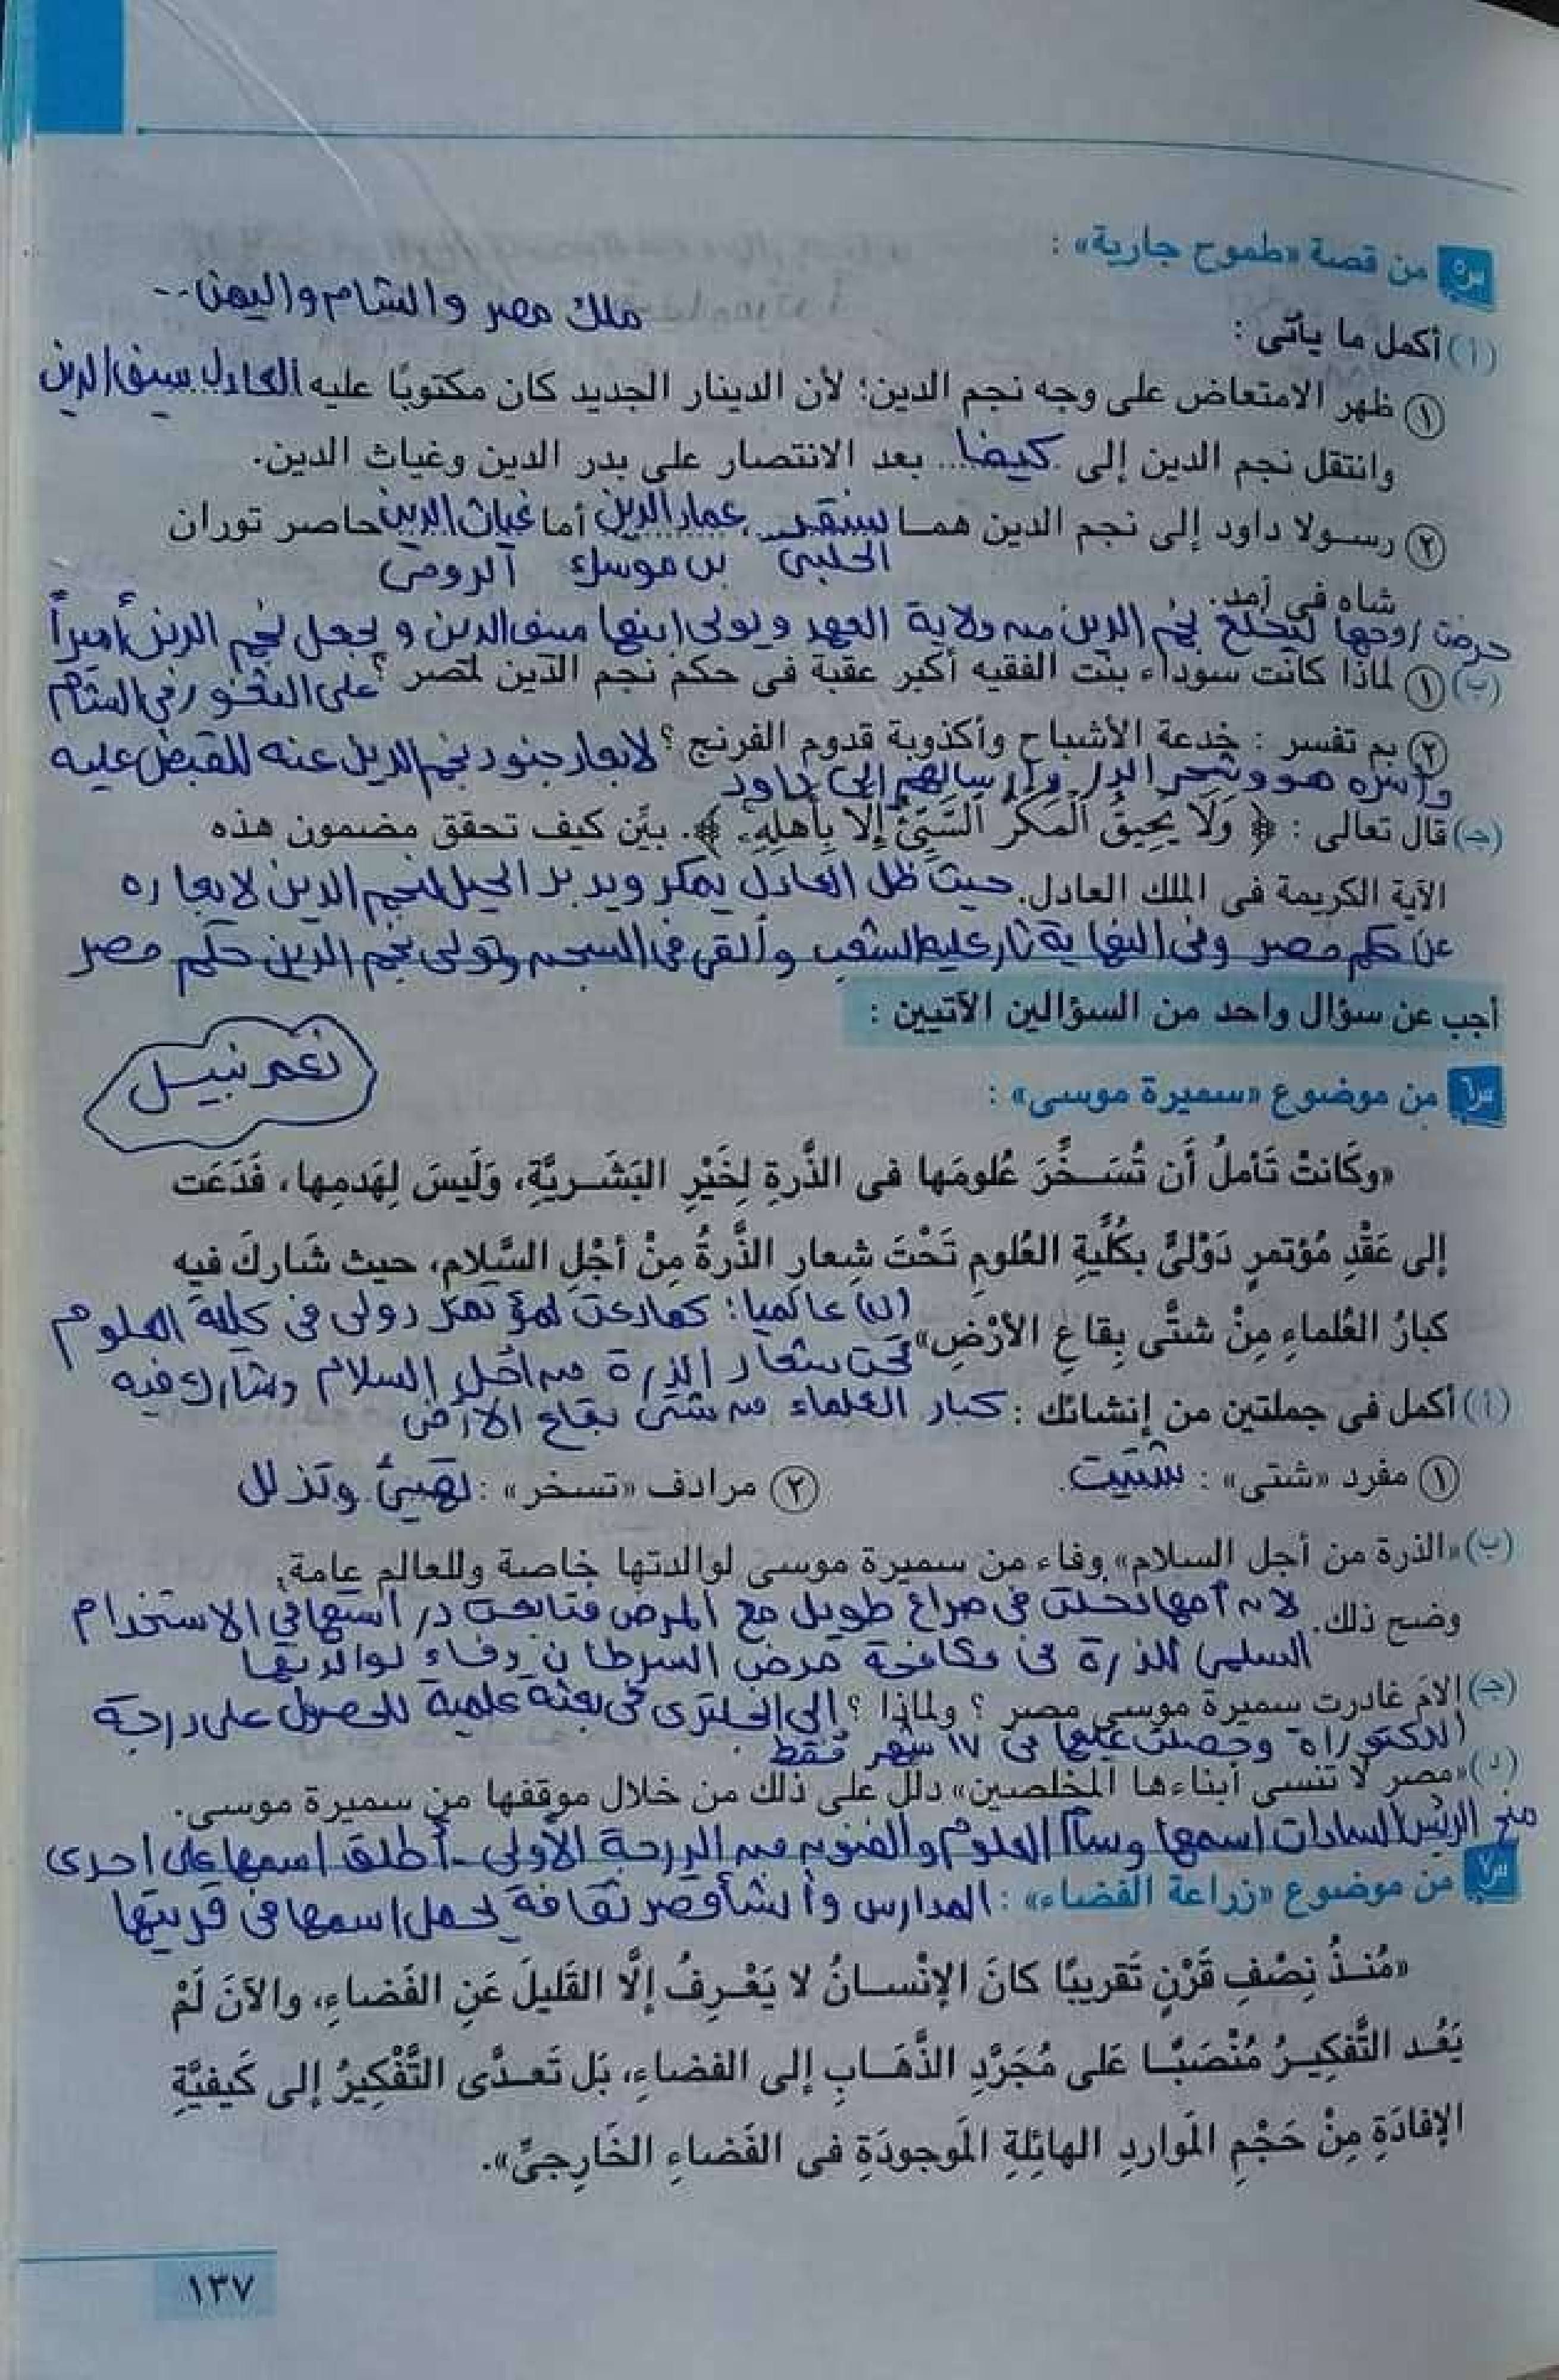 س٥ من قصة «طموح جارية» :
ملك مصر والشام واليمن --
(أ) أكمل ما يأتى :
① ظهر الامتعاض على وجه نجم الدين؛ لأن الدينار الجديد كان مكتوبًا عليه العادل سيف الدين
وانتقل نجم الدين إلى كيفا.... بعد الانتصار على بدر الدين وغياث الدين.
② رسولا داود إلى نجم الدين هما سنقر ، عمار الدين أما غياث الدين حاصر توران
الحلبى بن موسك الرومى
شاه فى آمد.
حرضت زوجها ليخلع نجم الدين من ولاية العهد ويولى ابنها سيف الدين ويجعل نجم الدين أميراً
(ب) ① لماذا كانت سوداء بنت الفقيه أكبر عقبة فى حكم نجم الدين لمصر ؟ على الثغور فى الشام
② بم تفسر : خدعة الأشباح وأكذوبة قدوم الفرنج ؟ لابعاد جنود نجم الدين عنه للقبض عليه
وأسره هو وشجر الدر وارسالهم إلى داود
(جـ) قال تعالى : ﴿ وَلَا يَحِيقُ الْمَكْرُ السَّيِّئُ إِلَّا بِأَهْلِهِ ﴾. بيِّن كيف تحقق مضمون هذه
الآية الكريمة فى الملك العادل. حيث ظل العادل يمكر ويدبر الحيل لنجم الدين لابعاده
عن حكم مصر وفى النهاية ثار عليه الشعب وألقى فى السجن وتولى نجم الدين حكم مصر
أجب عن سؤال واحد من السؤالين الآتيين :
نعم نبيل
س٦ من موضوع «سميرة موسى» :
«وكَانتْ تَأملُ أن تُسَخَّرَ عُلومَها فى الذَّرةِ لِخَيْرِ البَشَريَّةِ، وَلَيسَ لِهَدمِها، فَدَعَت
إلى عَقْدِ مُؤتمرٍ دَوْلىٍّ بكُلِّيةِ العُلومِ تَحْتَ شِعارِ الذَّرةُ مِنْ أجْلِ السَّلامِ، حيث شَاركَ فيهِ
كبارُ العُلماءِ مِنْ شتَّى بِقاعِ الأرْضِ» (ب) عالميا: كما دعت لمؤتمر دولى فى كلية العلوم
تحت شعار الذرة من اجل السلام وشارك فيه
(أ) أكمل فى جملتين من إنشائك : كبار العلماء من شتى بقاع الارض
① مفرد «شتى» : شتيت. ② مرادف «تسخر» : تهيئ وتذلل
(ب) «الذرة من أجل السلام» وفاء من سميرة موسى لوالدتها خاصة وللعالم عامة،
وضح ذلك. لان أمها دخلت فى صراع طويل مع المرض فتابعت دراستها فى الاستخدام
السلمى للذرة فى مكافحة مرض السرطان وفاء لوالدتها
(جـ) إلامَ غادرت سميرة موسى مصر ؟ ولماذا ؟ إلى انجلترى فى بعثة علمية للحصول على درجة
الدكتوراة وحصلت عليها فى ١٧ شهر فقط
(د) «مصر لا تنسى أبناءها المخلصين» دلل على ذلك من خلال موقفها من سميرة موسى.
منح الرئيس السادات اسمها وسام العلوم والفنون من الدرجة الأولى - أطلق اسمها على احدى
س٧ من موضوع «زراعة الفضاء» : المدارس وأنشأ قصر ثقافة يحمل اسمها فى قريتها
«مُنذُ نِصْفِ قَرْنٍ تَقريبًا كانَ الإنْسانُ لا يَعْرِفُ إلَّا القَليلَ عَنِ الفَضاءِ، والآنَ لَمْ
يَعُد التَّفكيرُ مُنْصَبًّا عَلى مُجَرَّدِ الذَّهَابِ إلى الفضاءِ، بَل تَعدَّى التَّفْكيرُ إلى كَيفيَّةِ
الإفادَةِ مِنْ حَجْمِ المَواردِ الهائِلةِ المَوجودَةِ فى الفَضاءِ الخَارِجىِّ».
١٣٧